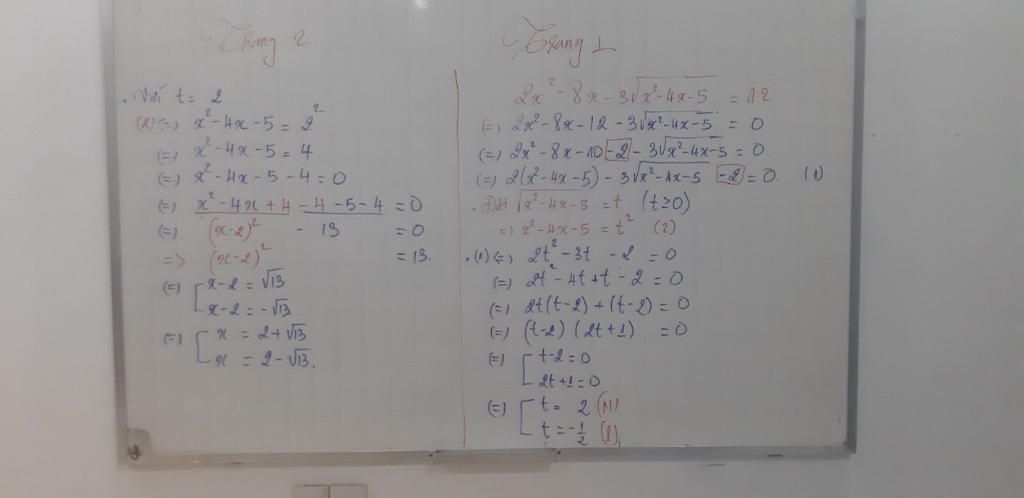 Trang 2
. Với t = 2
(2) (=) x² - 4x - 5 = 2²
(=) x² - 4x - 5 = 4
(=) x² - 4x - 5 - 4 = 0
(=) x² - 4x + 4 - 4 - 5 - 4 = 0
(=) (x-2)² - 13 = 0
=> (x-2)² = 13.
(=) [ x - 2 = √13
x - 2 = -√13
(=) [ x = 2 + √13
x = 2 - √13.
Trang 1
2x² - 8x - 3√(x² - 4x - 5) = 12
(=) 2x² - 8x - 12 - 3√(x² - 4x - 5) = 0
(=) 2x² - 8x - 10 - 2 - 3√(x² - 4x - 5) = 0
(=) 2(x² - 4x - 5) - 3√(x² - 4x - 5) - 2 = 0. (1)
. Đặt √(x² - 4x - 5) = t (t ≥ 0)
=> x² - 4x - 5 = t² (2)
. (1) (=) 2t² - 3t - 2 = 0
(=) 2t² - 4t + t - 2 = 0
(=) 2t(t-2) + (t-2) = 0
(=) (t-2) (2t+1) = 0
(=) [ t - 2 = 0
2t + 1 = 0
(=) [ t = 2 (N)
t = -1/2 (l)